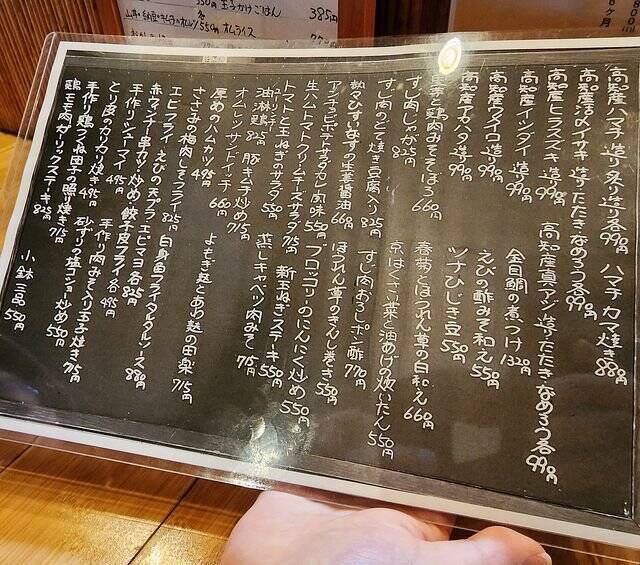 高知産ハマチ 造り 炙り造り各990円 ハマチカマ焼き880円
高知産イサキ 造り たたき なめろう各990円
高知産ヒラスズキ 造り990円 高知産真アジ 造り たたき なめろう各990円
高知産イシダイ 造り990円 金目鯛の煮つけ1320円
高知産マダイ 造り990円 えびの酢みそ和え550円
高知産アカハタ 造り990円 ツナひじき豆550円
里芋と鶏肉みそそぼろ660円 春菊とほうれん草の白和え660円
すじ肉じゃが825円 京はくさい菜と油あげの炊いたん550円
すじ肉のどて焼き豆腐入り825円 すじ肉おろしポン酢770円
熱々ひすいなすの生姜醤油660円 ほうれん草のきんし巻き550円
アンチョビポテトサラダカレー風味550円 ブロッコリーのにんにく炒め550円
生ハムトマトクリームチーズサラダ715円 新玉ねぎステーキ550円
トマトと玉ねぎのサラダ550円 蒸しキャベツ肉みそ715円
油淋鶏825円 豚キムチ炒め715円
オムレツサンドイッチ660円
厚めのハムカツ495円 よもぎ麩とあわ麩の田楽715円
ささみの梅肉しそフライ825円
エビフライ えびの天プラ エビマヨ各825円 白身魚フライタルタルソース880円
赤ウィンナー串カツ 炒め 餃子皮フライ各495円
手作りシューマイ495円 手作り肉みそ入り玉子焼き715円
とり皮のカリカリ焼き495円 砂ずりの塩コショー炒め550円
手作り鶏つくね団子の照り焼き715円
鶏モモ肉ガーリックステーキ825円 小鉢三品550円
玉子かけごはん 385円
550円 オムライス